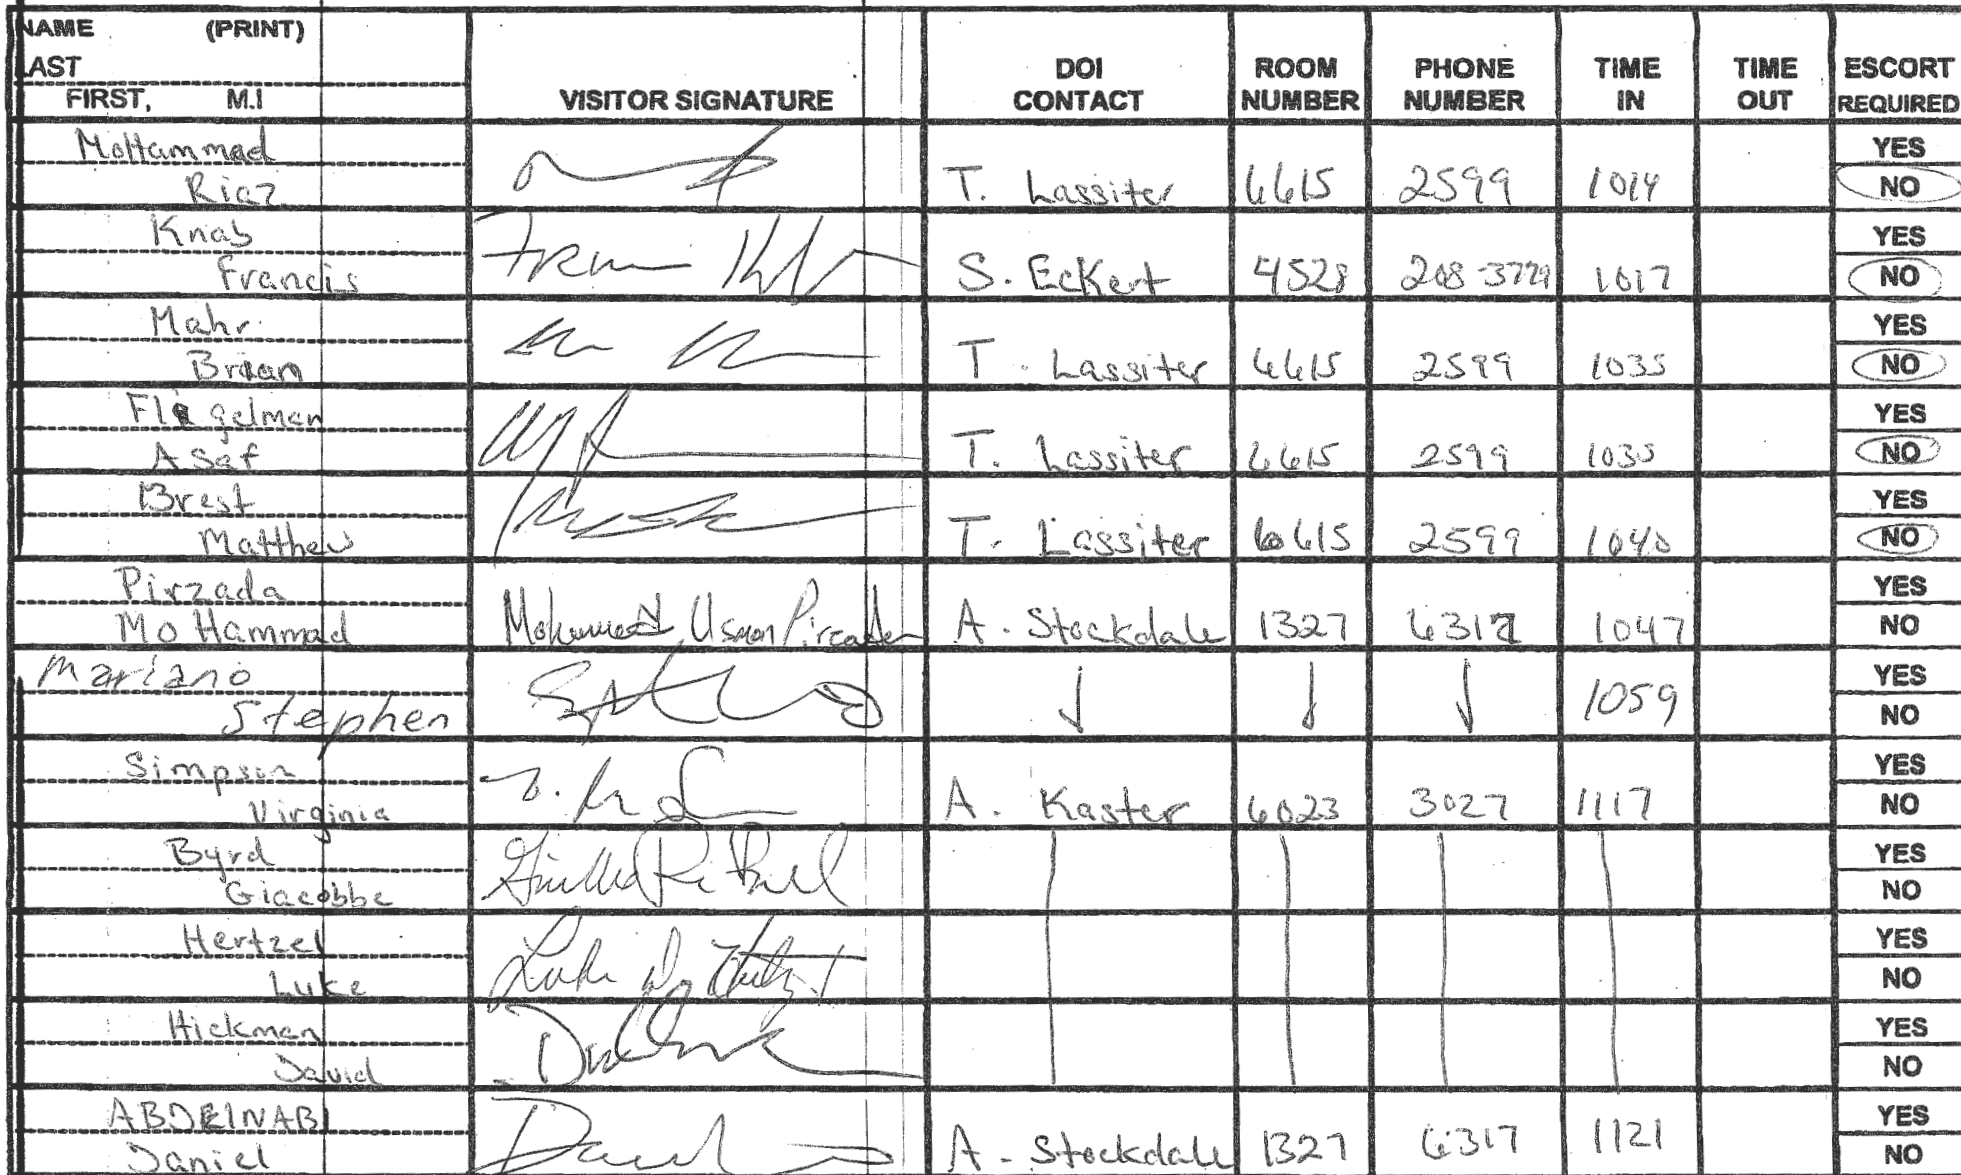 NAME (PRINT)
LAST
FIRST, M.I
VISITOR SIGNATURE
DOI CONTACT
ROOM NUMBER
PHONE NUMBER
TIME IN
TIME OUT
ESCORT REQUIRED
Mohammad
Riaz
T. Lassiter 6615 2599 1014
YES
NO
Knab
Francis
S. Eckert 4528 208-3729 1017
YES
NO
Mahr
Brian
T. Lassiter 6615 2599 1035
YES
NO
Flegelman
Asaf
T. Lassiter 6615 2599 1035
YES
NO
Brest
Matthew
T. Lassiter 6615 2599 1040
YES
NO
Pirzada
MoHammad
Mohammed Usman Pirzada
A. Stockdale 1327 6317 1047
YES
NO
Mariano
Stephen
1059
YES
NO
Simpson
Virginia
A. Kaster 6023 3027 1117
YES
NO
Byrd
Giacobbe
YES
NO
Hertzel
Luke
YES
NO
Hickman
David
YES
NO
ABDELNABI
Daniel
A. Stockdale 1327 6317 1121
YES
NO